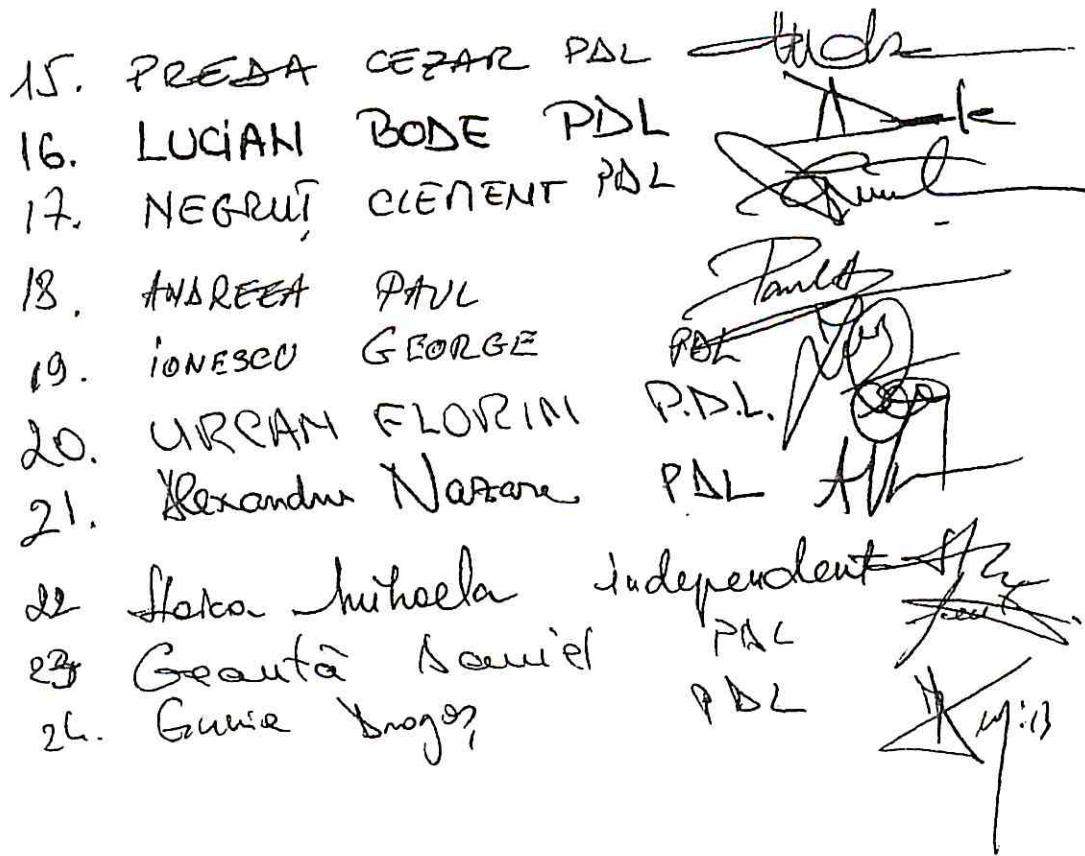 15. PREDA CEZAR PDL
16. LUCIAN BODE PDL
17. NEGRUȚ CLEMENT PDL
18. ANDREEA PAUL
19. IONESCU GEORGE PDL
20. URCAN FLORIN P.D.L.
21. Alexandru Nazare PDL
22 Stoica Mihaela independent
23 Geantă Daniel PDL
24. Gunia Dragoș PDL